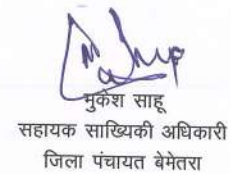 मुकेश साहू
सहायक साख्यिकी अधिकारी
जिला पंचायत बेमेतरा